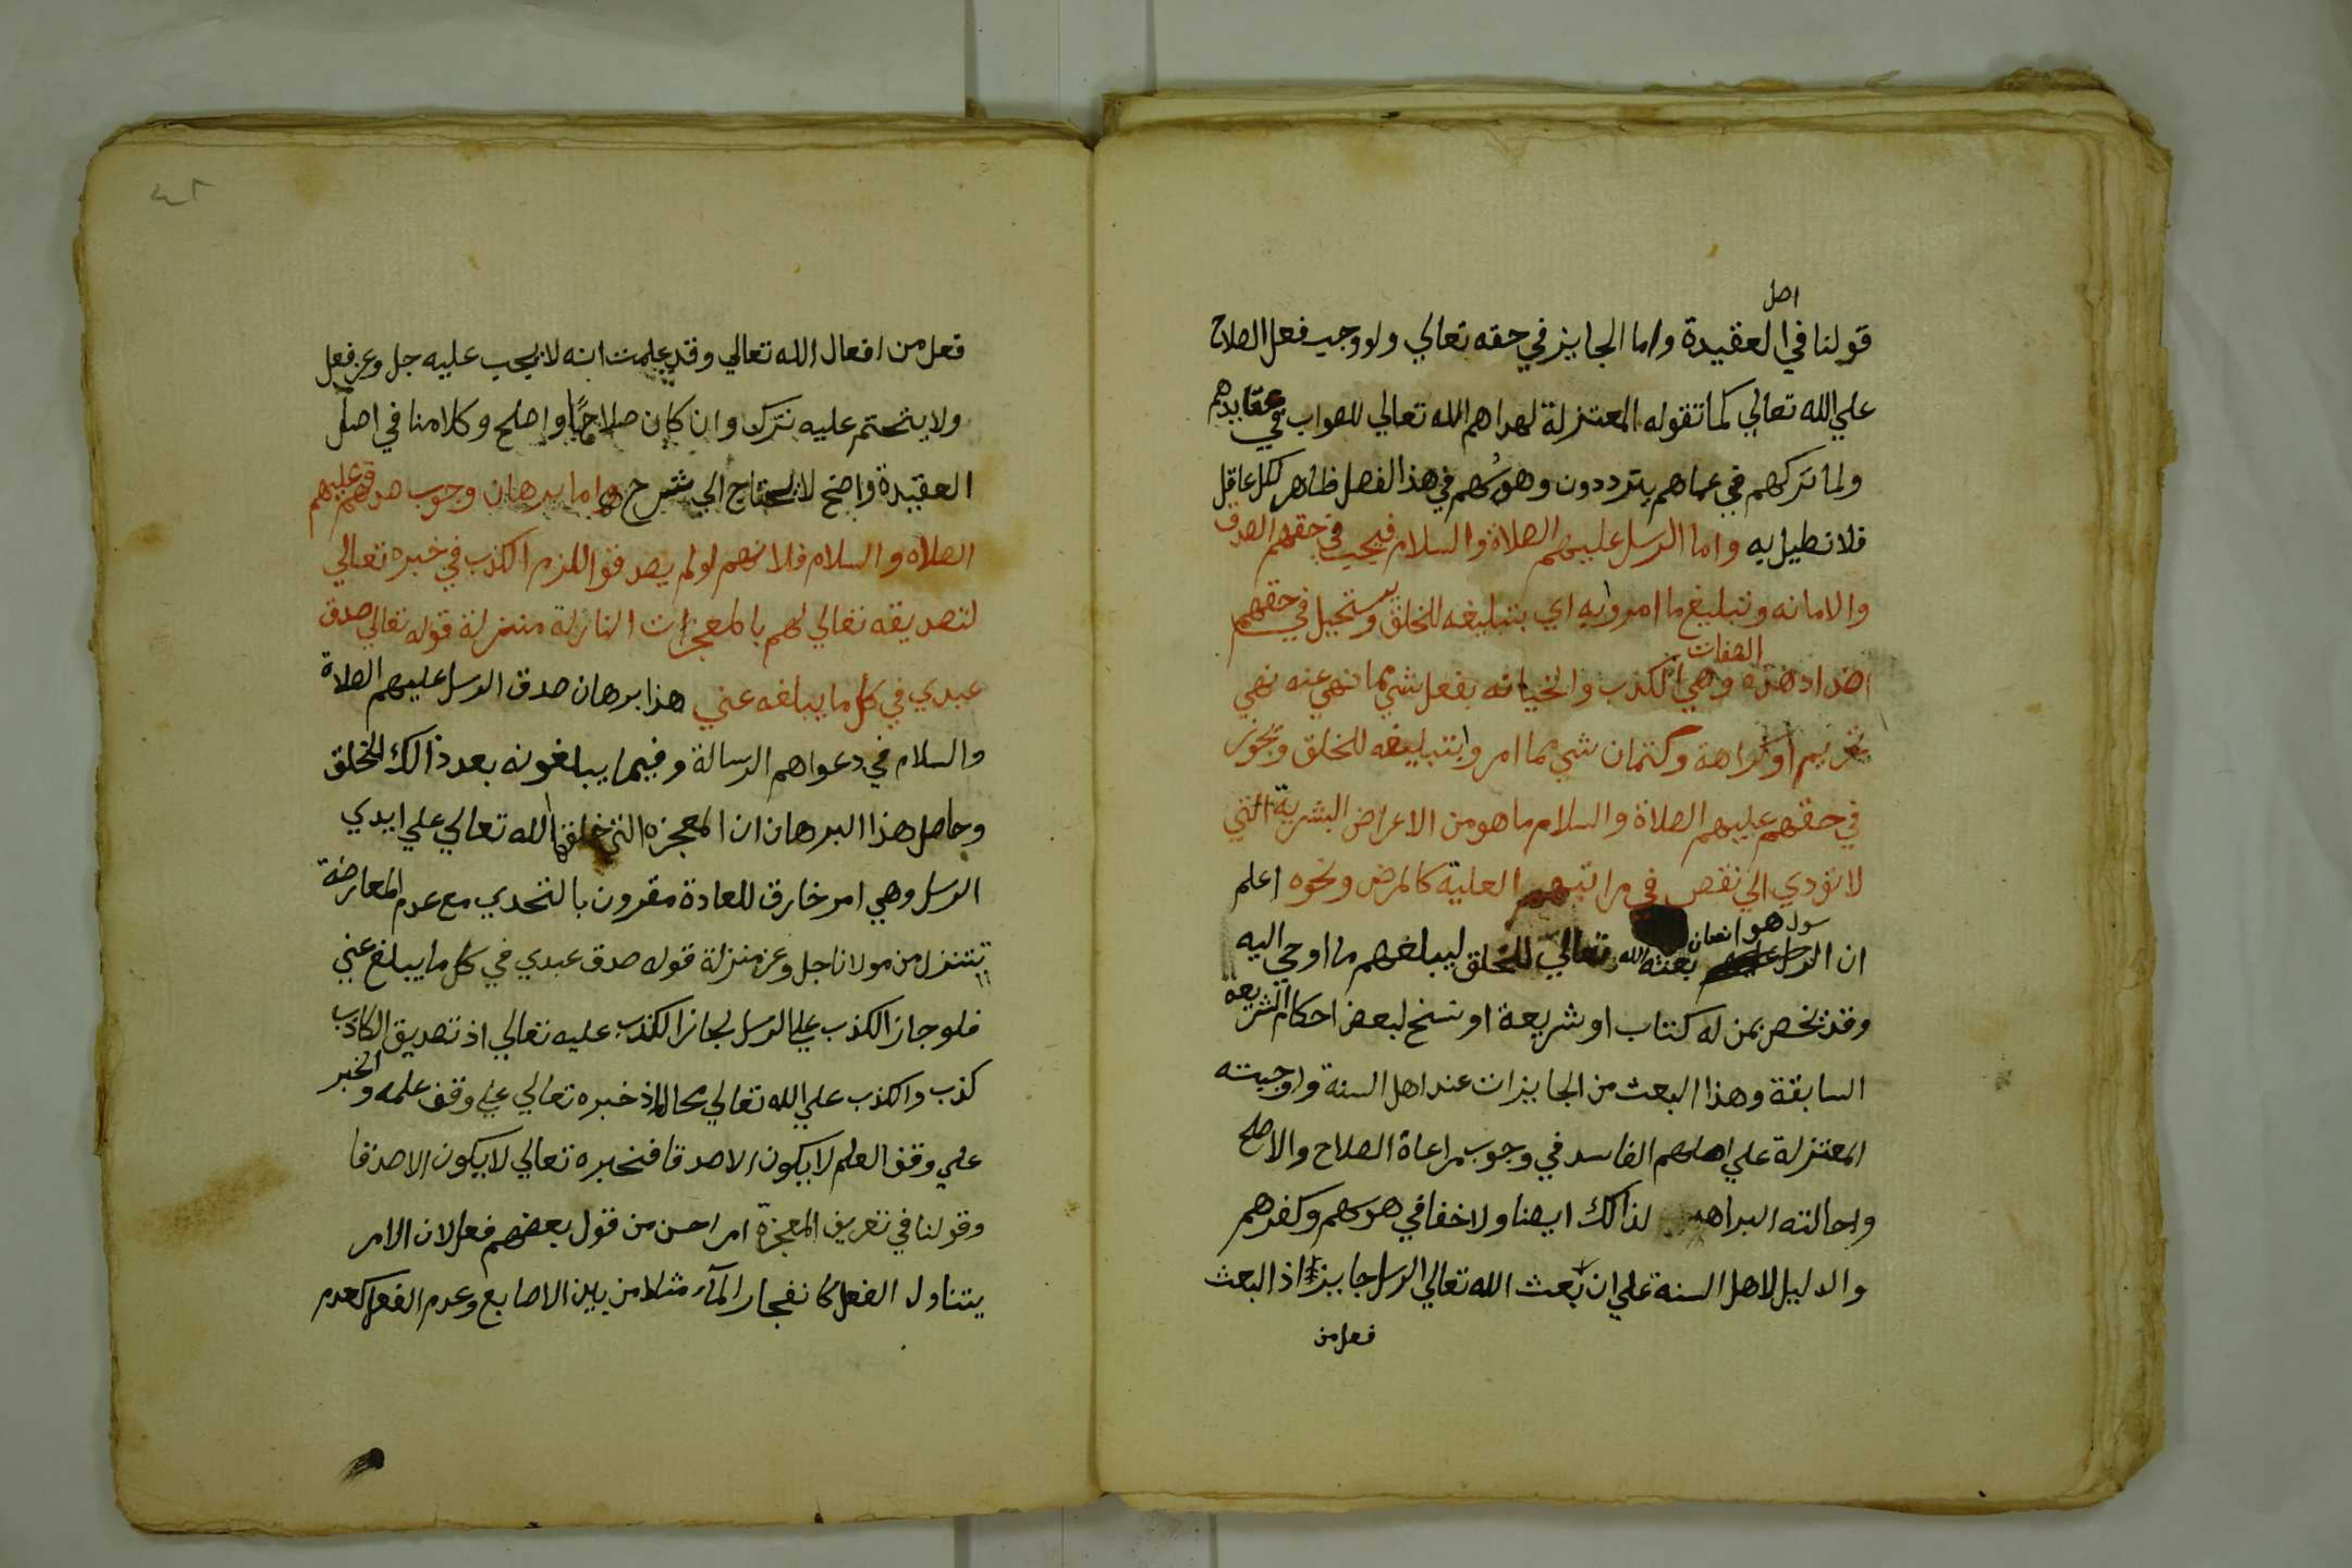 اصل
قولنا في العقيدة واما الجايز في حقه تعالي ولو وجب فعل الصلاح
علي الله تعالي كما تقوله المعتزلة لهداهم الله تعالي للصواب في عقايدهم
ولما تركهم في عماهم يترددون وهوسهم في هذا الفصل ظاهر لكل عاقل
فلا نطيل به واما الرسل عليهم الصلاة والسلام فيجب في حقهم الصدق
والامانه وتبليغ ما امروا به اي بتبليغه للخلق ويستحيل في حقهم
اضداد هذه الصفات وهي الكذب والخيانه بفعل شي مما نهي عنه نهي
تحريم او كراهة وكتمان شي مما امروا بتبليغه للخلق وتجوز
في حقهم عليهم الصلاة والسلام ما هو من الاعراض البشرية التي
لا تؤدي الي نقص في مراتبهم العلية كالمرض ونحوه اعلم
ان الرسول هو انسان بعثه الله تعالي للخلق ليبلغهم ما اوحي اليه
وقد تخص بمن له كتاب او شريعة او نسخ لبعض احكام الشريعه
السابقة وهذا البعث من الجايزات عند اهل السنة واوجبته
المعتزلة علي اصلهم الفاسد في وجوب مراعاة الصلاح والاصلح
واحالته البراهمه لذالك ايضا ولا خفا في هوسهم وكفرهم
والدليل لاهل السنة علي ان بعث الله تعالي الرسل جايز اذ البعث
فعل من
فعل من افعال الله تعالي وقد علمت انه لا يجب عليه جل وعز فعل
ولا يتحتم عليه ترك وان كان صلاحا واصلح وكلامنا في اصل
العقيدة واضح لا يحتاج الي شرح واما برهان وجوب صدقهم عليهم
الصلاه والسلام فلانهم لو لم يصدقوا للزم الكذب في خبره تعالي
لتصديقه تعالي لهم بالمعجزات النازلة منزلة قوله تعالي صدق
عبدي في كل ما يبلغه عني هذا برهان صدق الرسل عليهم الصلاة
والسلام في دعواهم الرسالة وفيما يبلغونه بعد ذالك للخلق
وحاصل هذا البرهان ان المعجزه التي خلقها الله تعالي علي ايدي
الرسل وهي امر خارق للعادة مقرون بالتحدي مع عدم المعارضة
تتنزل من مولانا جل وعز منزلة قوله صدق عبدي في كل ما يبلغ عني
فلو جاز الكذب علي الرسل لجاز الكذب عليه تعالي اذ تصديق الكاذب
كذب والكذب علي الله تعالي محال اذ خبره تعالي علي وفق علمه والخبر
علي وفق العلم لا يكون الا صدقا فخبره تعالي لا يكون الا صدقا
وقولنا في تعريف المعجزة امر احسن من قول بعضهم فعل لان الامر
يتناول الفعل كانفجار المآء مثلا من بين الاصابع وعدم الفعل كعدم